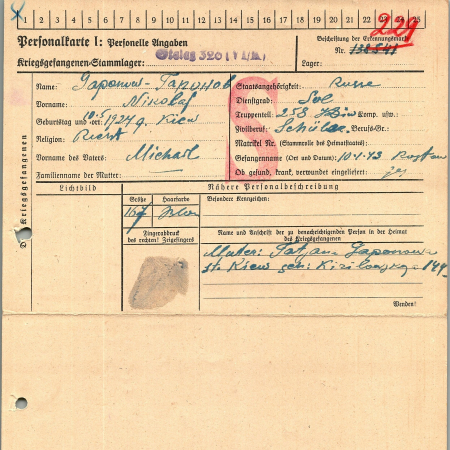 1 2 3 4 5 6 7 8 9 10 11 12 13 14 15 16 17 18 19 20 21 22 23 24 25
229
Personalkarte I: Personelle Angaben
Beschriftung der Erkennungsmarke
Nr.
Kriegsgefangenen-Stammlager: Stalag 326 (VI/K)
Lager:
Name: Gaponow - Гапонов
Staatsangehörigkeit: Russe
Vorname: Nikolaj
Dienstgrad: Sol
Geburtstag und -ort: 10.5.1924 g. Kiew
Truppenteil: 258 Komp. usw.:
Religion:
Zivilberuf: Schüler Berufs-Gr.:
Matrikel Nr. (Stammrolle des Heimatstaates):
Vorname des Vaters: Michael
Gefangennahme (Ort und Datum): 10.1.43 Rostow
Familienname der Mutter:
Ob gesund, krank, verwundet eingeliefert:
Lichtbild
Nähere Personalbeschreibung
Größe Haarfarbe
Besondere Kennzeichen:
167
Fingerabdruck
des rechten! Zeigefingers
Name und Anschrift der zu benachrichtigenden Person in der Heimat
des Kriegsgefangenen
Mutter: Tatjana Gaponowa
st. Kiew
Wenden!
Kriegsgefangenen